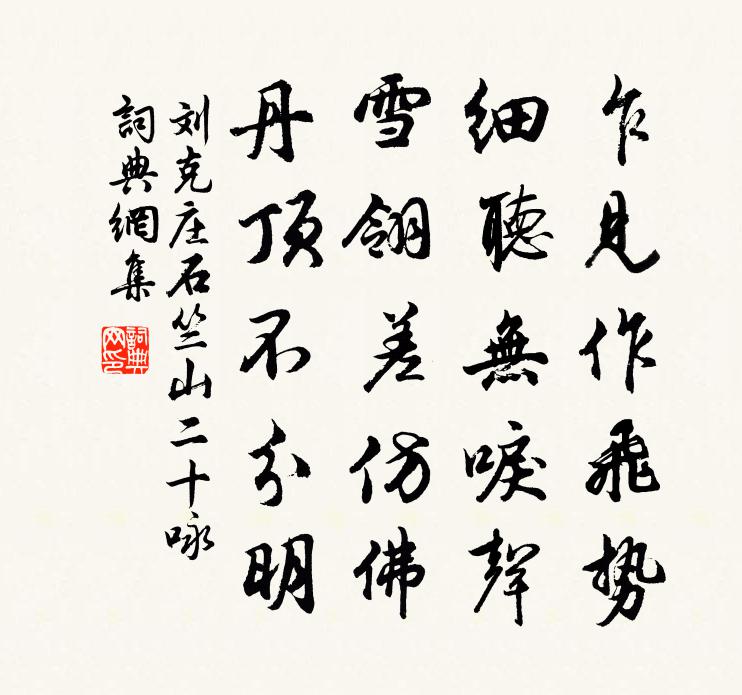 乍見作飛勢
細聽無唳聲
雪翎差仿佛
丹頂不分明
刘克庄石竺山二十咏
詞典網集
詞典网印